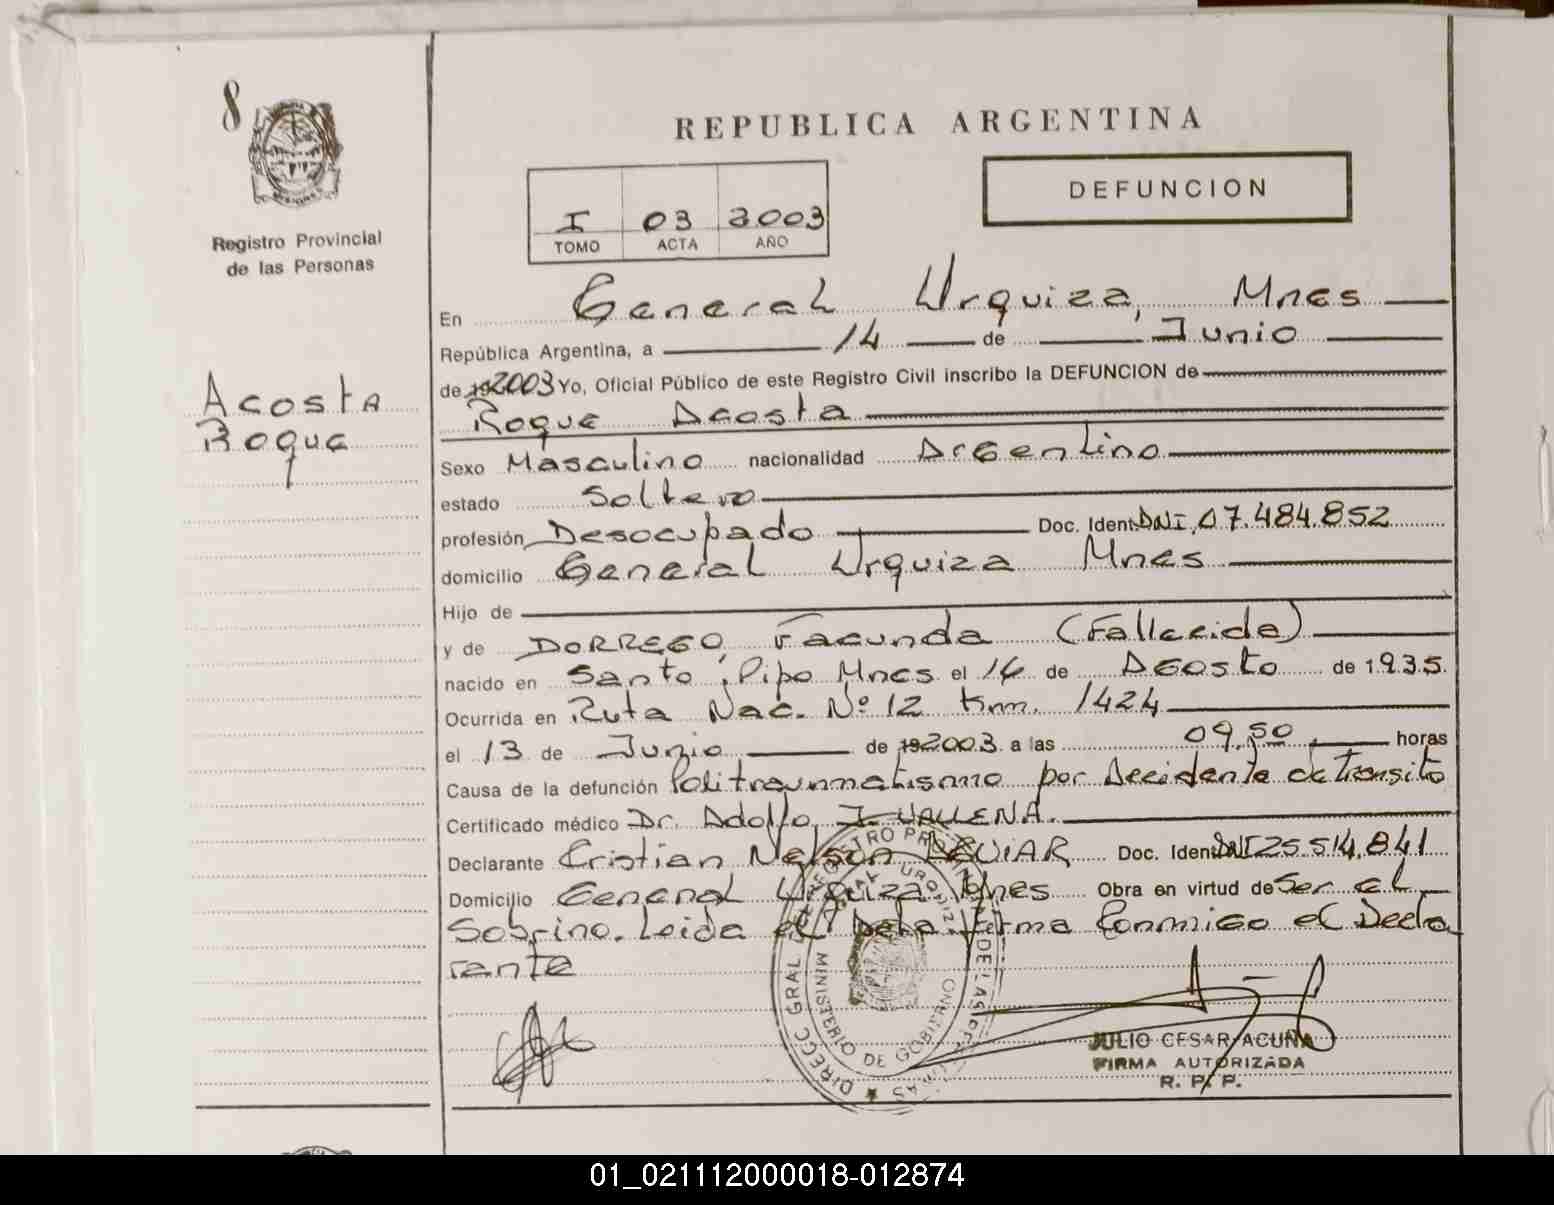 8
Registro Provincial
de las Personas
Acosta
Roque
REPUBLICA ARGENTINA
I 03 2003
TOMO ACTA AÑO
DEFUNCION
En General Urquiza, Mnes
República Argentina, a 14 de Junio
de 192003 Yo, Oficial Público de este Registro Civil inscribo la DEFUNCION de
Roque Acosta
Sexo Masculino nacionalidad Argentino
estado Soltero
profesión Desocupado Doc. Ident. DNI. 07.484.852
domicilio General Urquiza Mnes
Hijo de
y de DORREGO, Facunda (Fallecida)
nacido en Santo Pipo Mnes el 16 de Agosto de 1.935.
Ocurrida en Ruta Nac. Nº 12 Km. 1424
el 13 de Junio de 192003. a las 09,50 horas
Causa de la defunción Politraumatismo por Accidente de Transito
Certificado médico Dr. Adolfo I. VALLENA.
Declarante Cristian Nelson AGUIAR Doc. Ident. DNI 25.514.841
Domicilio General Urquiza Mnes Obra en virtud de Ser el
Sobrino. Leida el Acta Firma Conmigo el Decla
rante
DIRECC GRAL DEL REGISTRO PROVINCIAL DE LAS PERSONAS
GRAL URQUIZA
MINISTERIO DE GOBIERNO
JULIO CESAR ACUÑA
FIRMA AUTORIZADA
R. P. P.
01_021112000018-012874